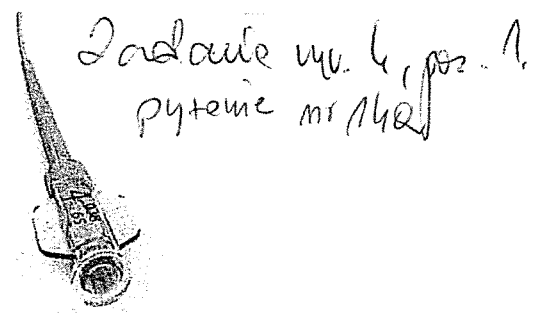 Zadanie nr. 4, poz. 1.
pytanie nr 140
4
.038
65